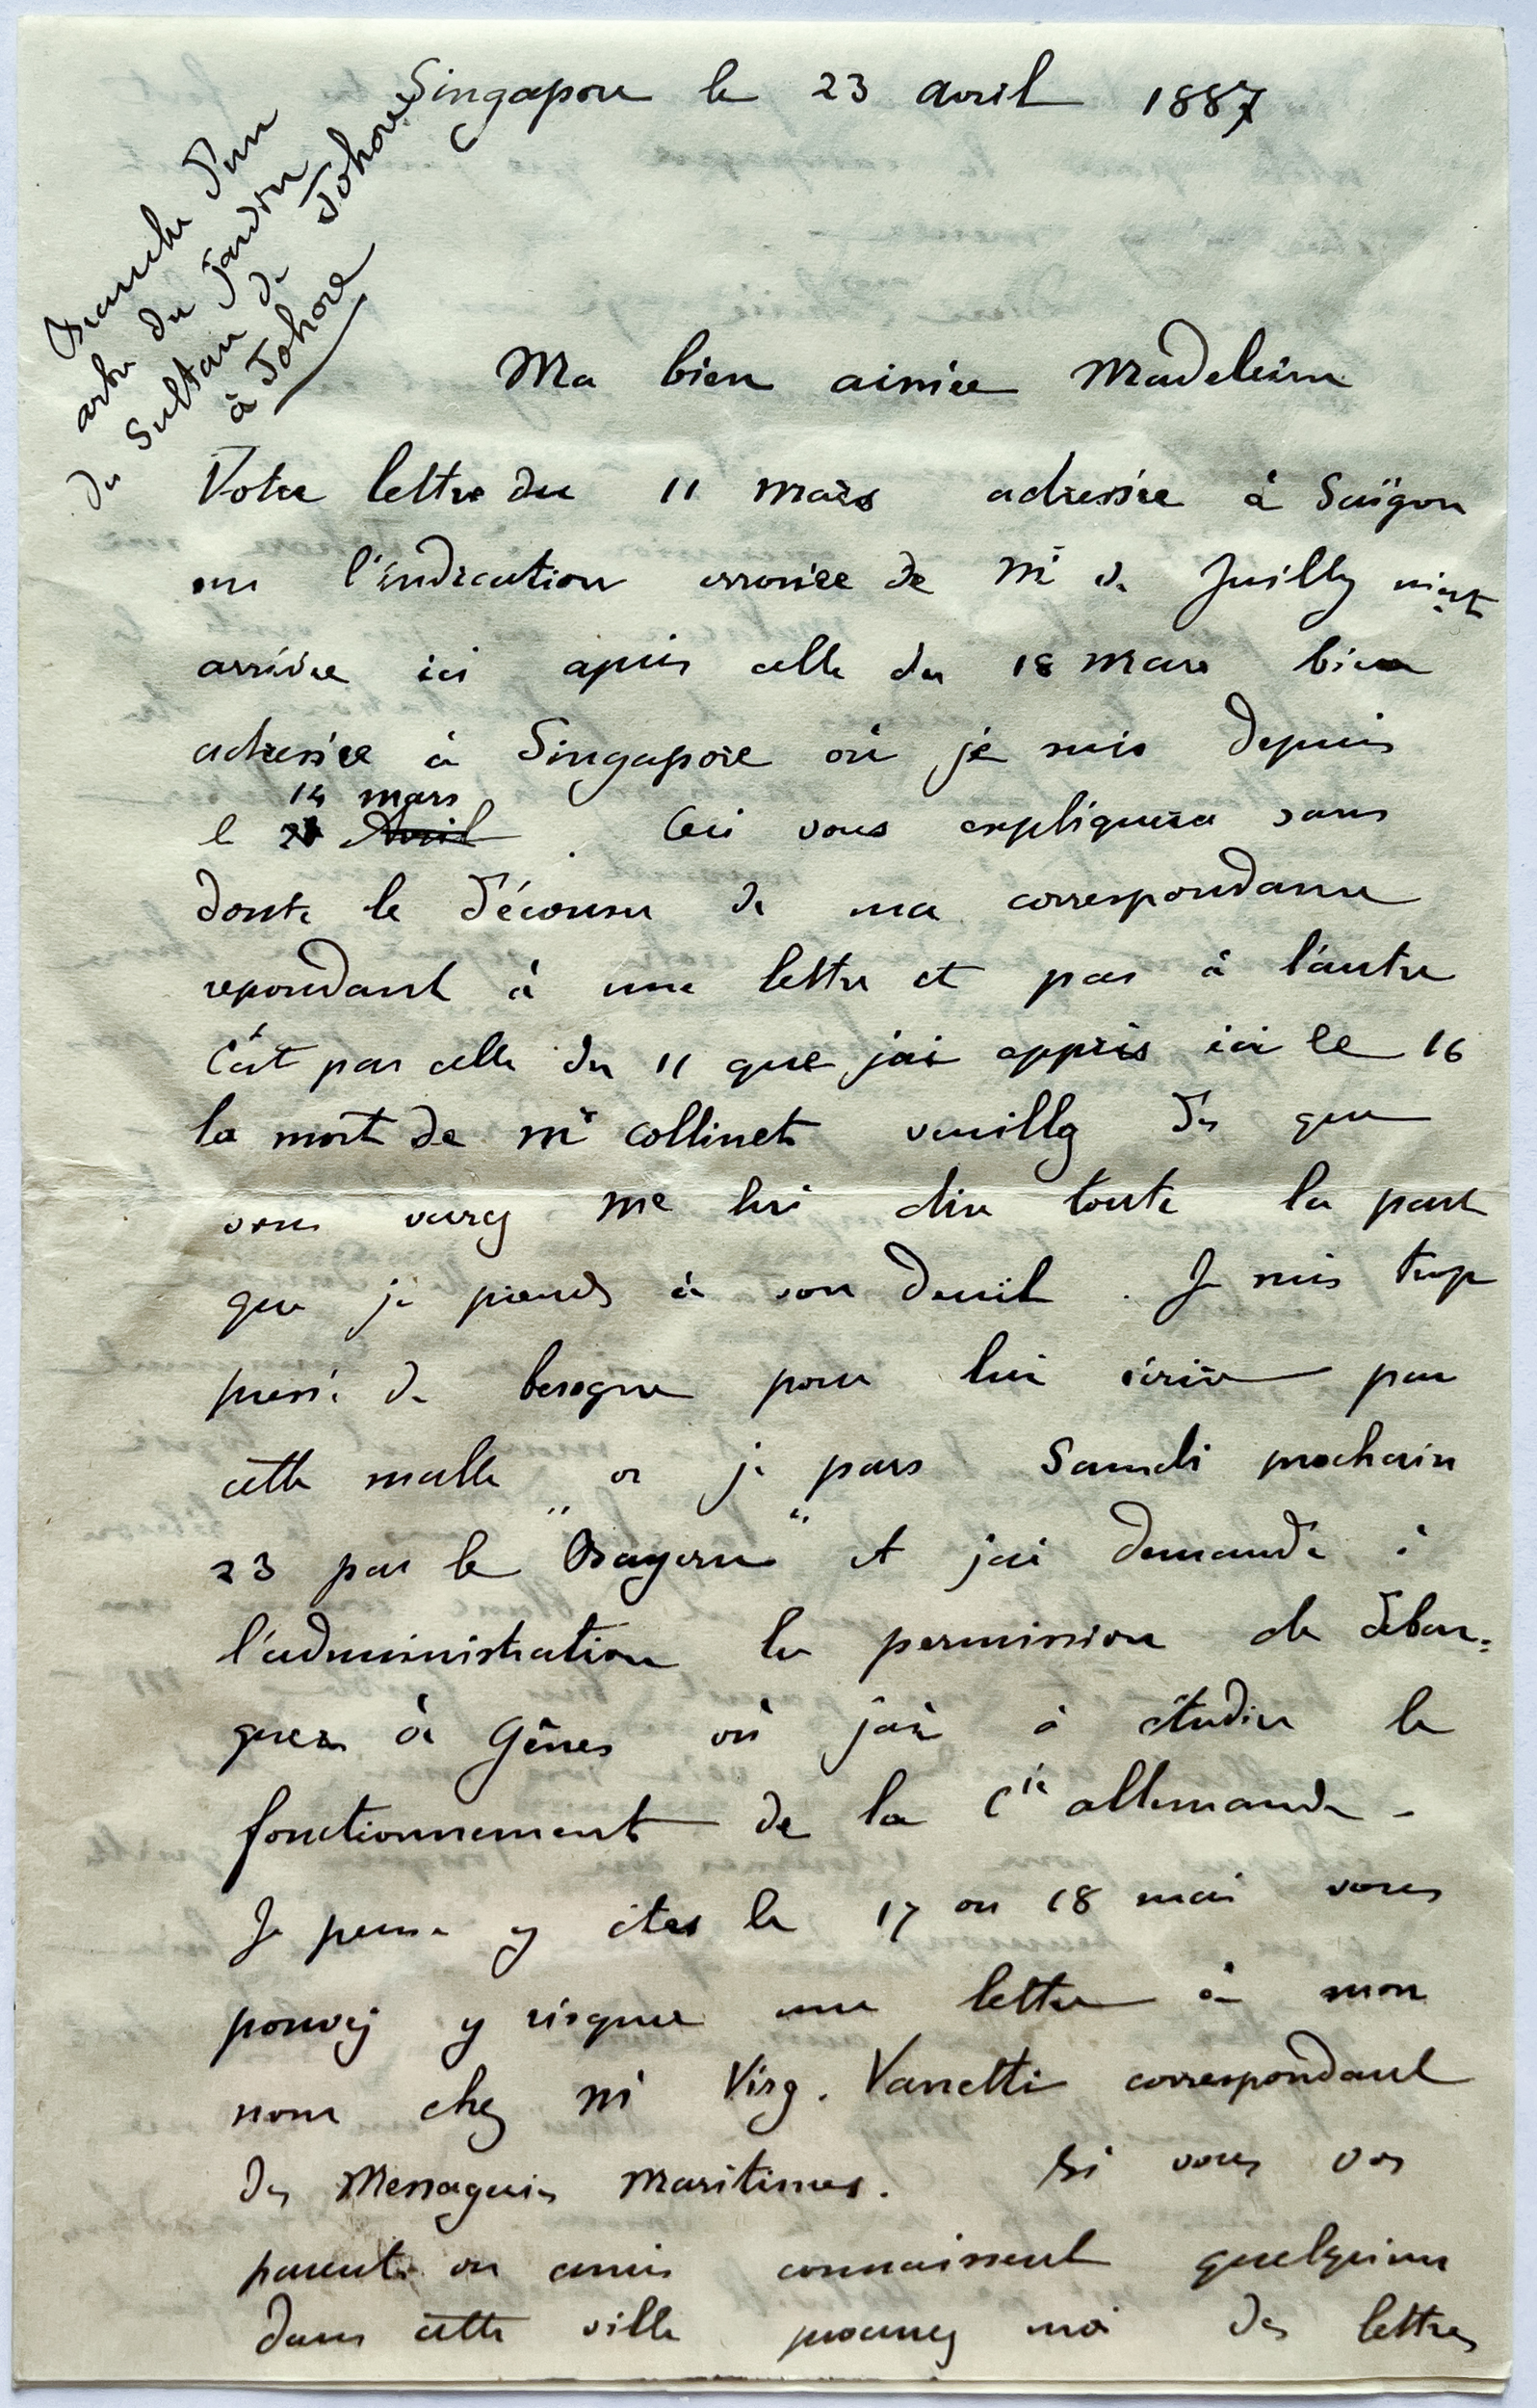 Singapore le 23 avril 1887
Branche d'un
arbre du jardin
du Sultan de Johore
à Johore
Ma bien aimée Madeleine
Votre lettre du 11 mars adressée à Saïgon
sur l'indication erronée de Mr de Juilly m'est
arrivée ici après celle du 18 mars bien
adressée à Singapore où je suis depuis
14 mars
le Avril. Ceci vous expliquera sans
doute le décousu de ma correspondance
repondant à une lettre et pas à l'autre
C'est par celle du 11 que j'ai appris ici le 16
la mort de Mr Collinet veuillez dès que
vous verrez Me lui dire toute la part
que je prends à son deuil. Je suis trop
pressé de besogne pour lui écrire par
cette malle or je pars Samedi prochain
23 par le "Bayern" et j'ai demandé à
l'administration la permission de débar=
quer à Gênes où j'ai à étudier le
fonctionnement de la Cie allemande -
Je pense y être le 17 ou 18 mai vous
pouvez y risquer une lettre à mon
nom chez Mr Virg. Vanetti correspondant
des Messageries Maritimes. Si vous vos
parents ou amis connaissent quelqu'un
dans cette ville procurez moi des lettres